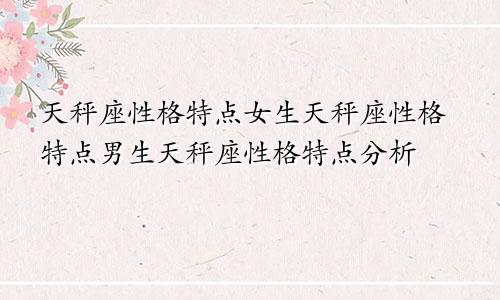 天秤座性格特点女生天秤座性格
特点男生天秤座性格特点分析